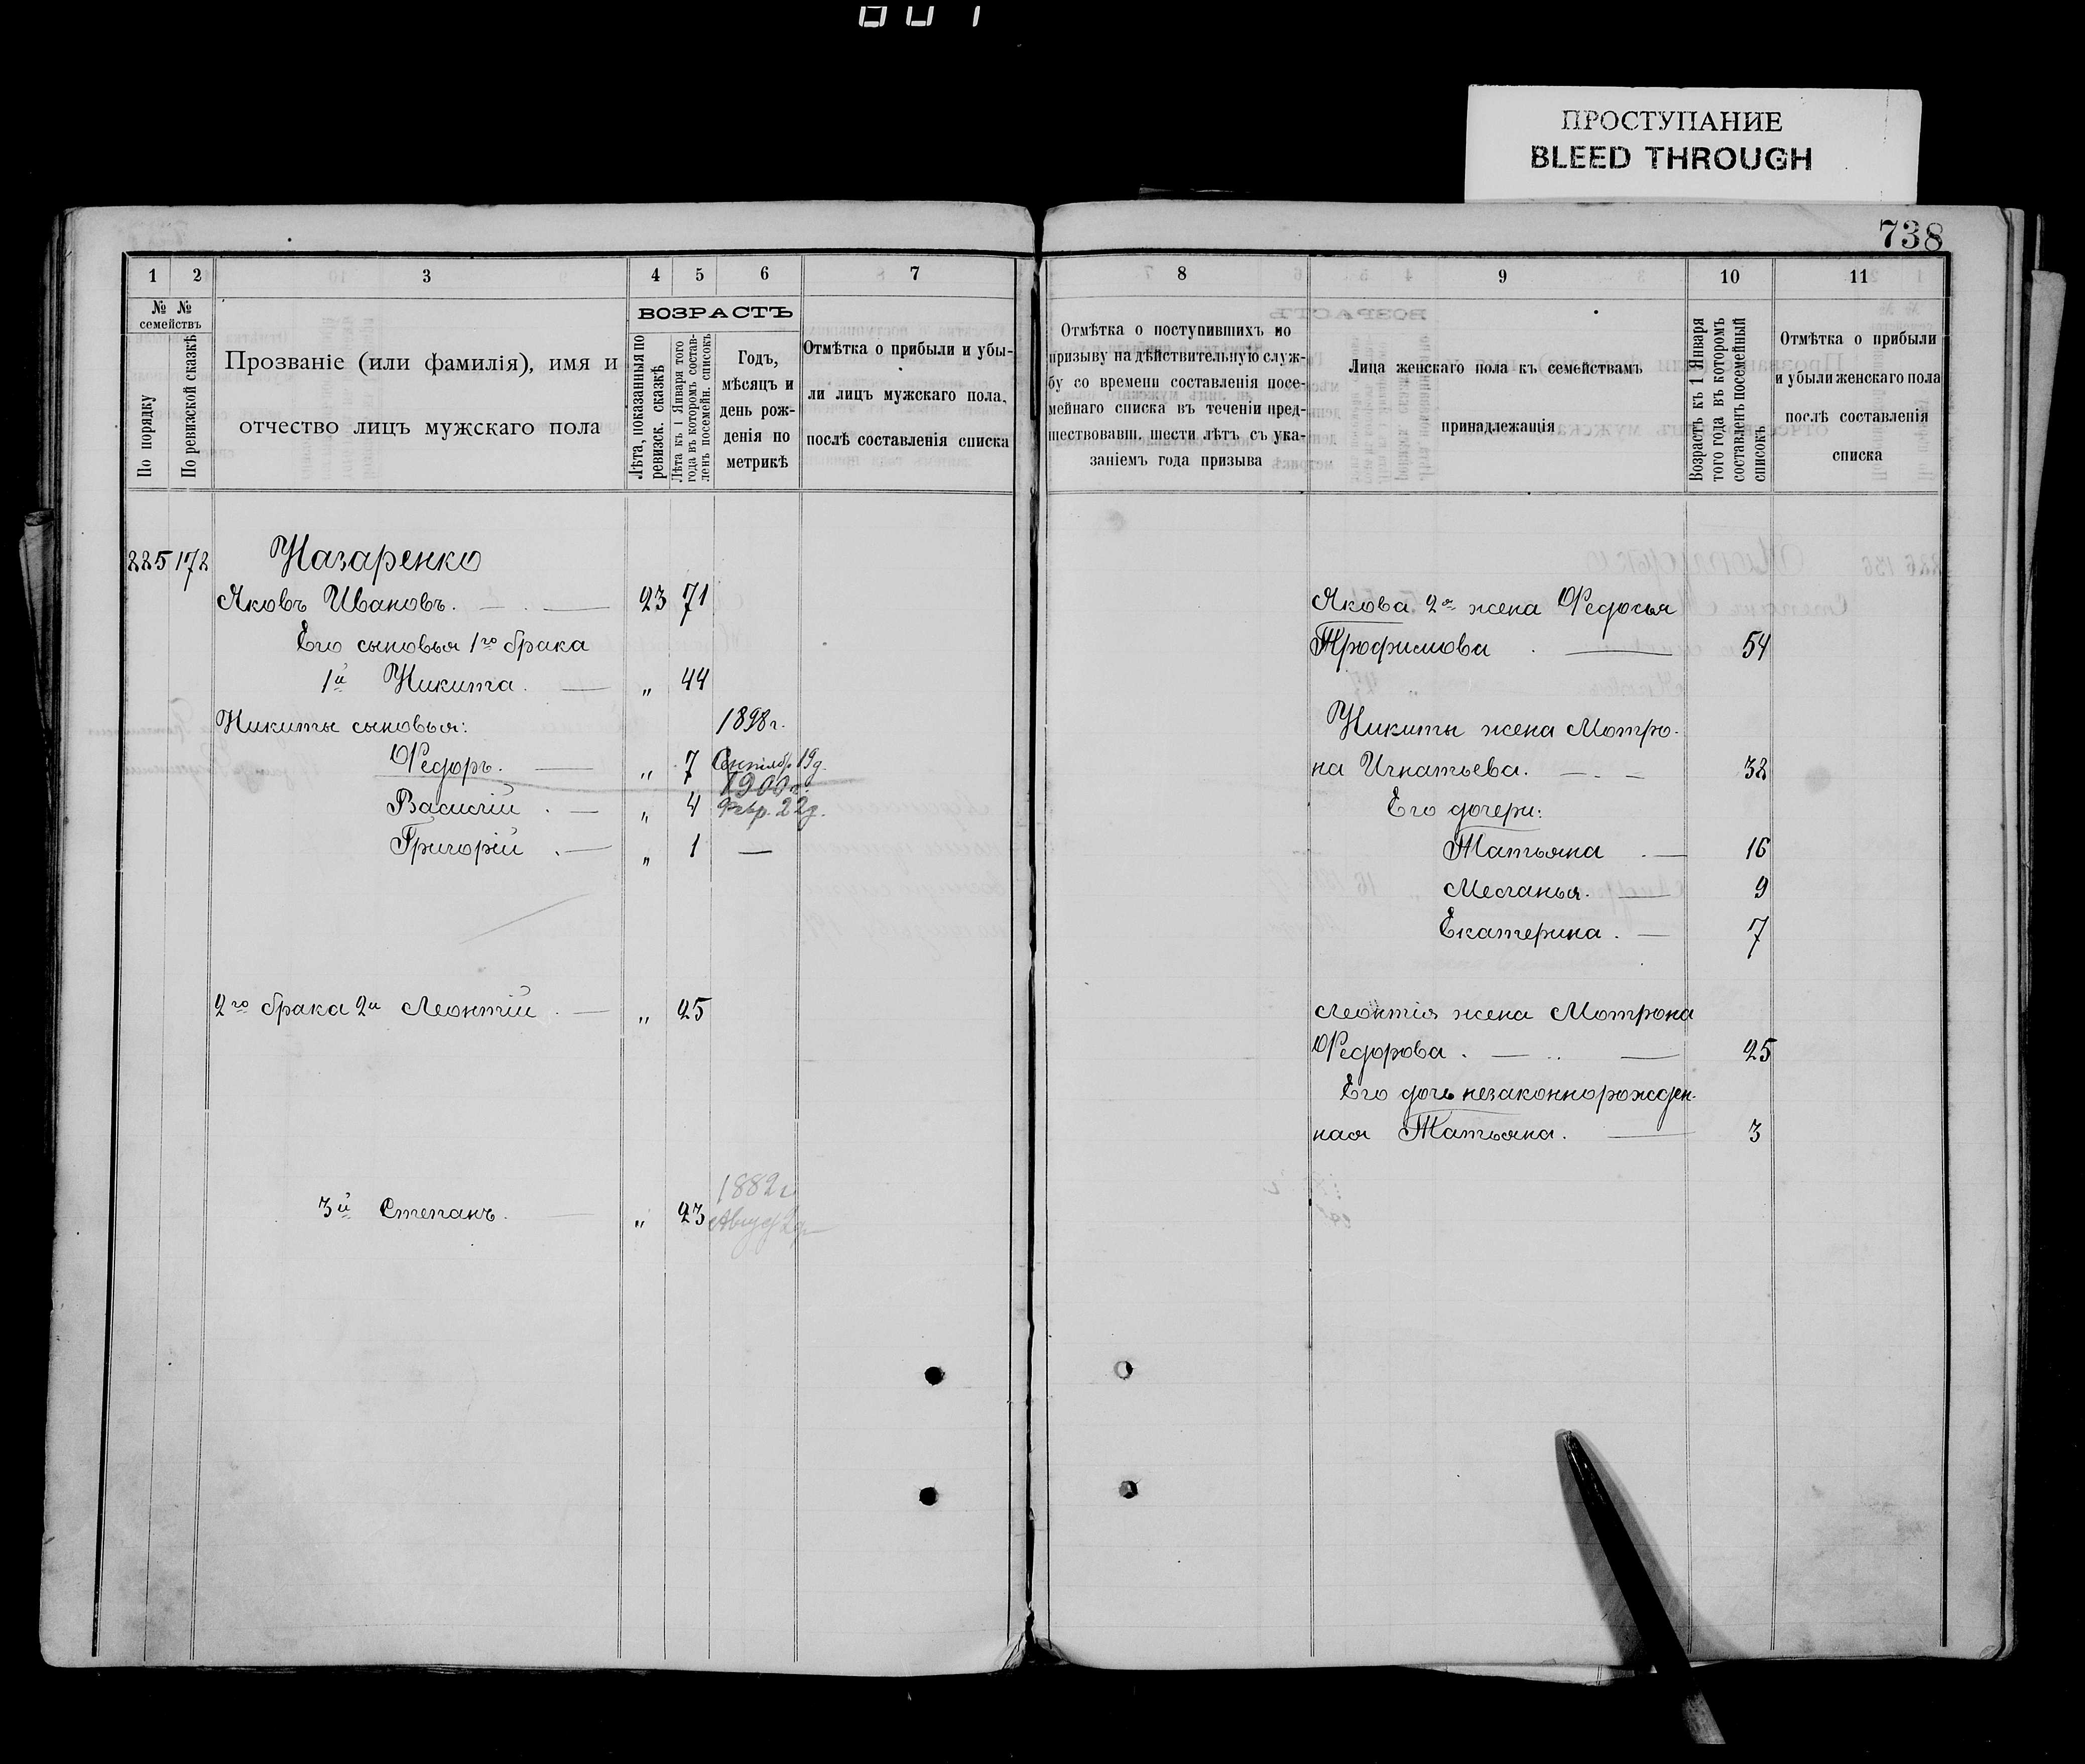 ПРОСТУПАНИЕ
BLEED THROUGH
738
1 2 3 4 5 6 7
№ № семействъ
По порядку
По ревизской сказкѣ
Прозваніе (или фамилія), имя и
отчество лицъ мужскаго пола
ВОЗРАСТЪ
Лѣта, показанныя по
ревизск. сказкѣ
Лѣта къ 1 Января того
года въ которомъ состав-
ленъ посемейн. списокъ
Годъ,
мѣсяцъ и
день рож-
денія по
метрикѣ
Отмѣтка о прибыли и убы-
ли лицъ мужскаго пола,
послѣ составленія списка
8 9 10 11
Отмѣтка о поступившихъ по
призыву на дѣйствительную служ-
бу со времени составленія посе-
мейнаго списка въ теченіи пред-
шествовавш. шести лѣтъ съ ука-
заніемъ года призыва
Лица женскаго пола къ семействамъ
принадлежащія
Возрастъ къ 1 Января
того года въ которомъ
составленъ посемейный
списокъ
Отмѣтка о прибыли
и убыли женскаго пола
послѣ составленія
списка
225 172 Назаренко
Яковъ Ивановъ. 23 71
Его сыновья 1го брака
1й Никита. „ 44
Никиты сыновья: 1898г.
Ѳедоръ. „ 7 Сентябр 19д.
1900г.
Василій „ 4 Февр. 22д.
Григорій „ 1 —
2го брака 2й Леонтій „ 25
1882г
3й Степанъ. „ 23 Август 2д
Якова 2я жена Ѳедосья
Трофимова 54
Никиты жена Мотро-
на Игнатьева. 32
Его дочери:
Татьяна 16
Меланья. 9
Екатерина. 7
Леонтія жена Мотрона
Ѳедорова. 25
Его дочь незаконнорожден-
ная Татьяна. 3